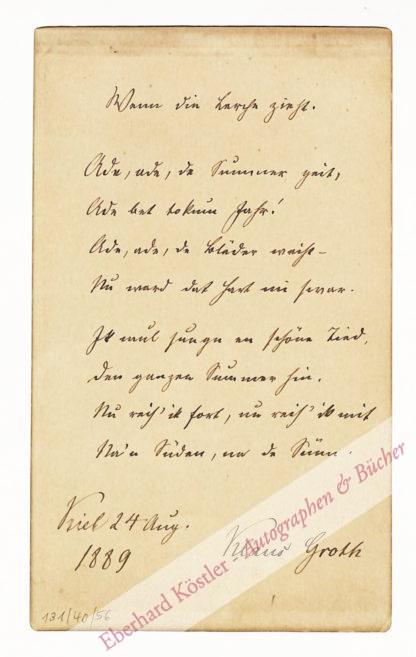 Wenn die Lerche zieht.
Ade, ade, de Summer geit,
Ade bet tokum Jahr!
Ade, ade, de Bläder weiht –
Nu ward dat Hart mi swar.
Ik sung en schöne Tied,
Den ganzen Summer hin.
Nu reis' ik fort, nu reis' ik mit
Na'n Süden, na de Sünn.
Kiel 24 Aug.
1889
Klaus Groth
131/40/56
Eberhard Köstler - Autographen & Bücher